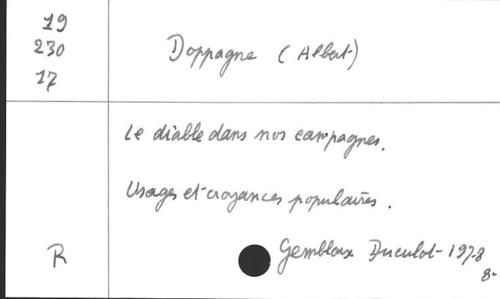 19
230
17
Doppagne (Albert)
Le diable dans nos campagnes.
Usages et croyances populaires.
R
Gembloux Duculot - 1978
8-